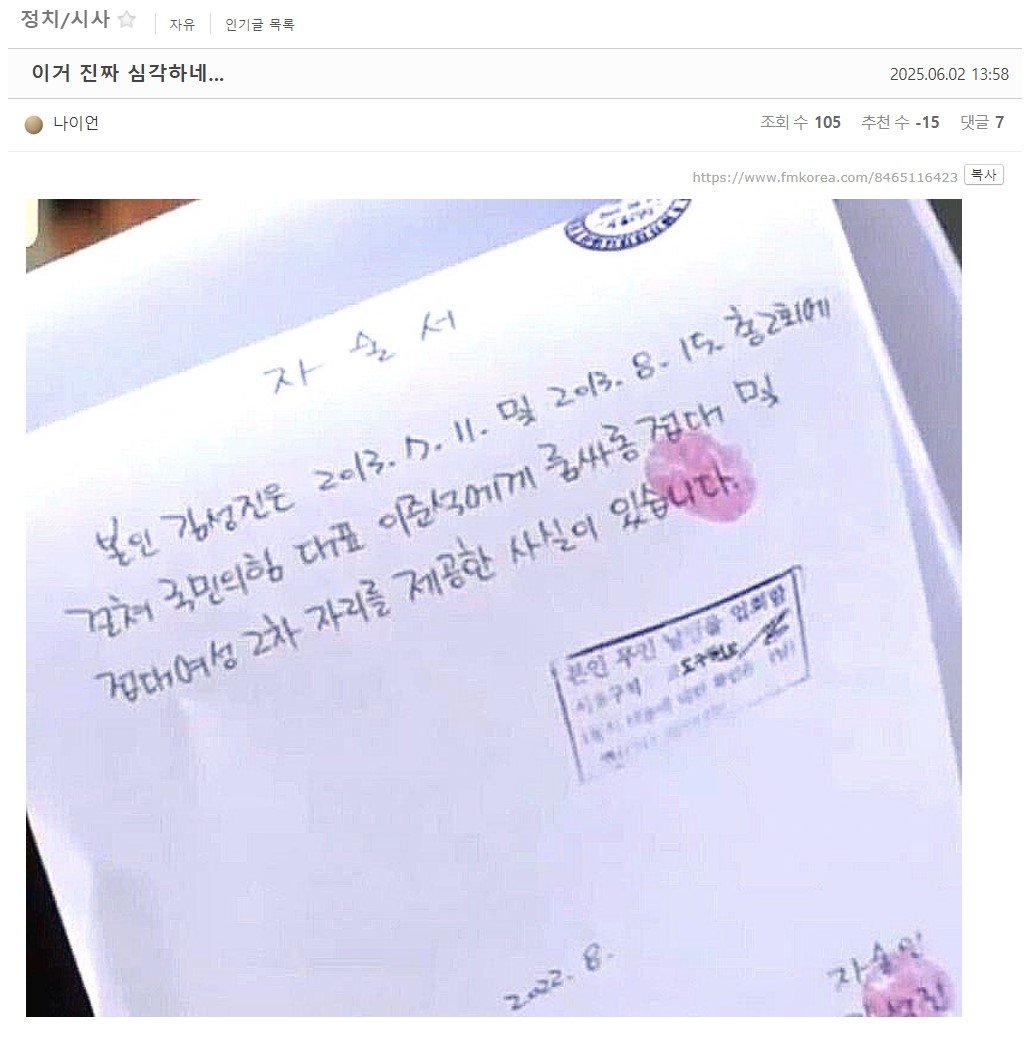 정치/시사 자유 인기글 목록
이거 진짜 심각하네... 2025.06.02 13:58
나이언 조회 수 105 추천 수 -15 댓글 7
https://www.fmkorea.com/8465116423 복사
자 술 서
본인 김성진은 2013. 7. 11. 및 2013. 8. 15. 총2회에
걸쳐 국민의힘 대표 이준석에게 룸싸롱 접대 및
접대여성 2차 자리를 제공한 사실이 있습니다.
본인 무인 날인을 입회함
2022. 8.
자술인
성진